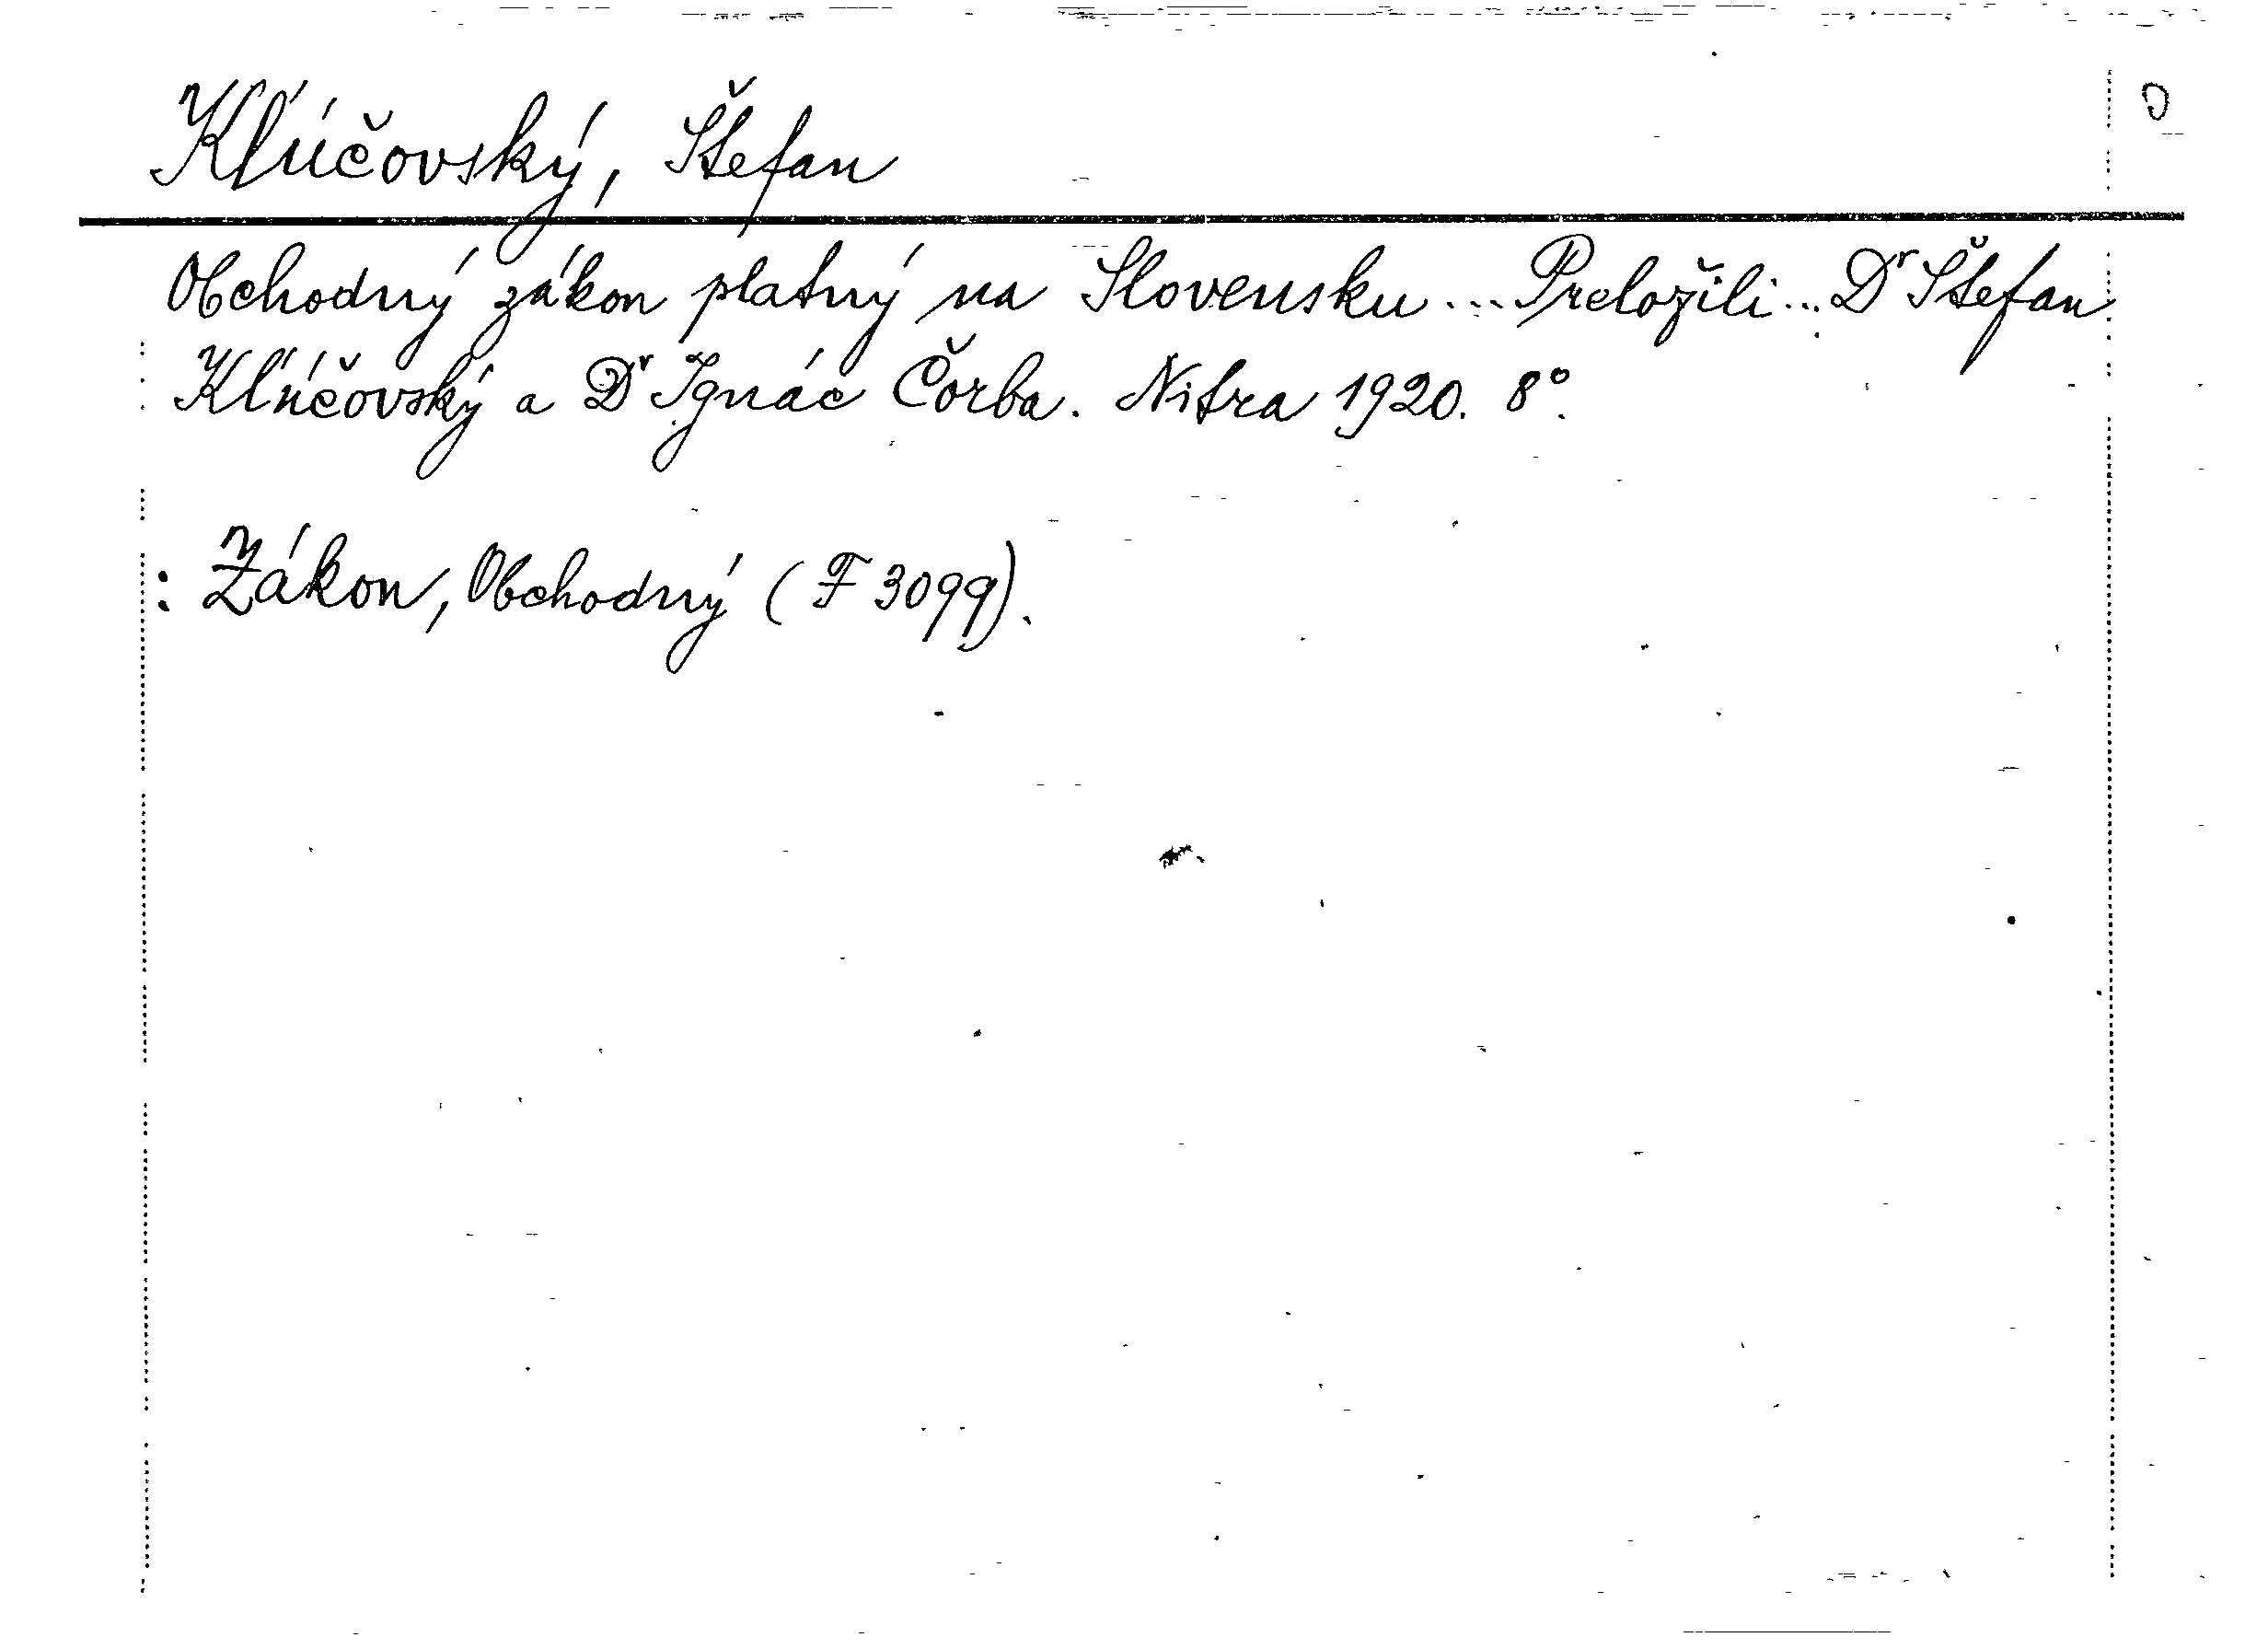 Kľúčovský, Štefan
Obchodný zákon platný na Slovensku... Preložili... Dr Štefan
Kľúčovský a Dr Ignác Čorba. Nitra 1920. 8°.
: Zákon, Obchodný (F 3099).